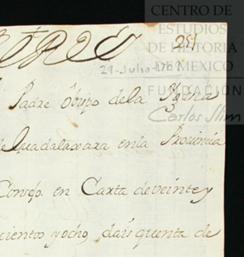 CENTRO DE
ESTUDIOS
DE HISTORIA
DE MEXICO
FUNDACIÓN
Carlos Slim
251
29-Julio-1709
Padre Obispo dela
Guadalaxara enla Provincia
Consejo en Carta deveinte y
cientos yocho, dais quenta de